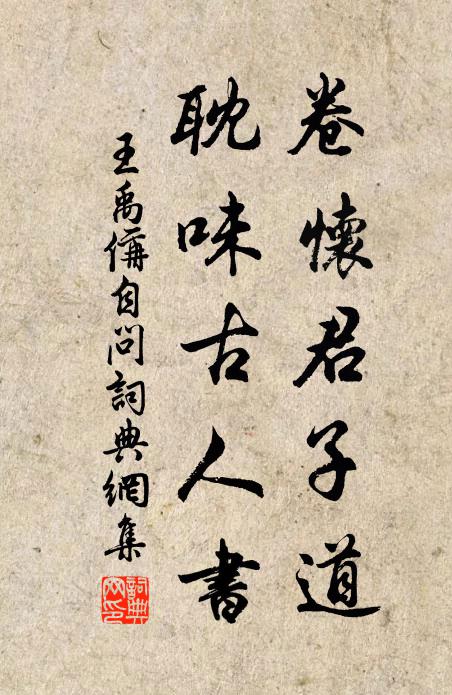 卷懷君子道
耽味古人書
王禹偁自问詞典網集
詞典網印